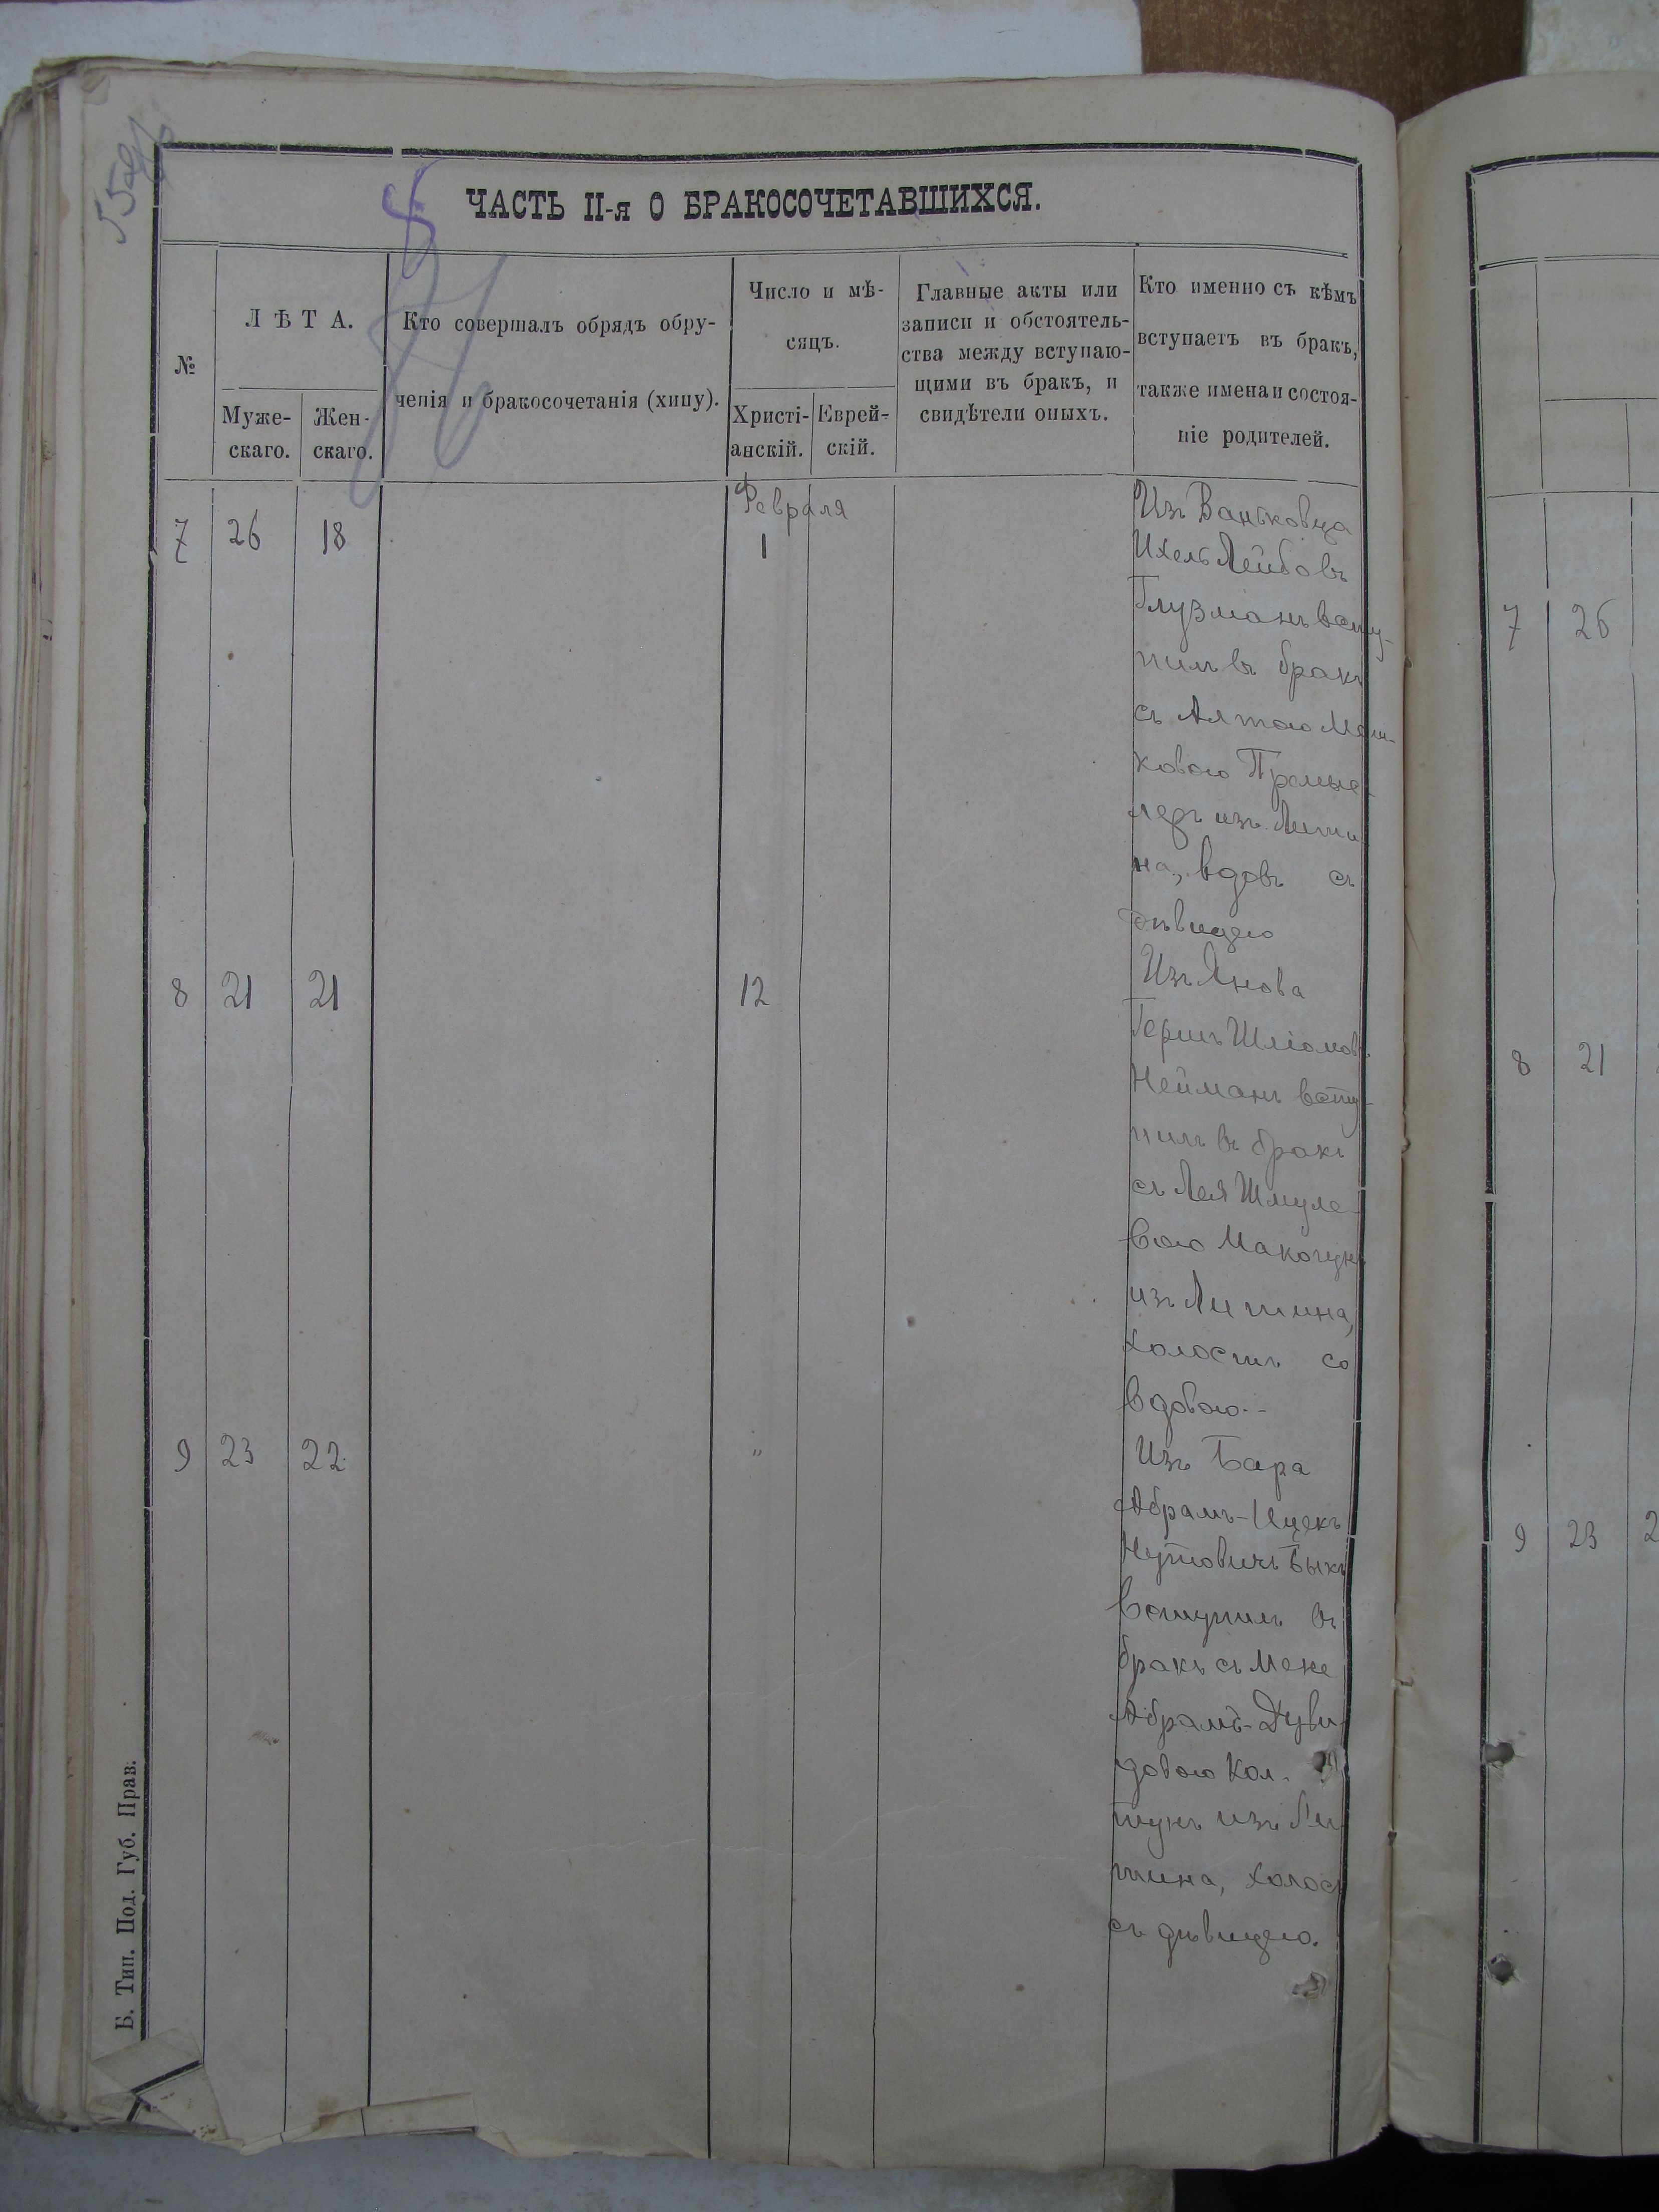 ЧАСТЬ II-я О БРАКОСОЧЕТАВШИХСЯ.
№
ЛѢТА.
Муже-
скаго.
Жен-
скаго.
Кто совершалъ обрядъ обру-
ченія и бракосочетанія (хипу).
Число и мѣ-
сяцъ.
Христі-
анскій.
Еврей-
скій.
Главные акты или
записи и обстоятель-
ства между вступаю-
щими въ бракъ, и
свидѣтели оныхъ.
Кто именно съ кѣмъ
вступаетъ въ бракъ,
также имена и состоя-
ніе родителей.
7 26 18
Февраля
1
Изъ Ваньковца
Ихель Лейбовъ
Глузманъ всту-
пилъ въ бракъ
съ Алтою
ковою
изъ Лити
на, вдовъ съ
дѣвицею
8 21 21
12
Изъ Янова
Гершъ Шліомов
Нейманъ всту-
пилъ въ бракъ
съ Лея Шмуле-
вою Макогун
изъ Литина,
холостъ со
вдовою.-
9 23 22
"
Изъ Бара
Абрамъ-Ицекъ
Нутовичъ Быкъ
вступилъ въ
бракъ съ
Абрамъ-Дуви-
довою Кол-
тунъ изъ Ли-
тина, холост
съ дѣвицею.
Б. Тип. Под. Губ. Прав.
7 26
8 21
9 23 2